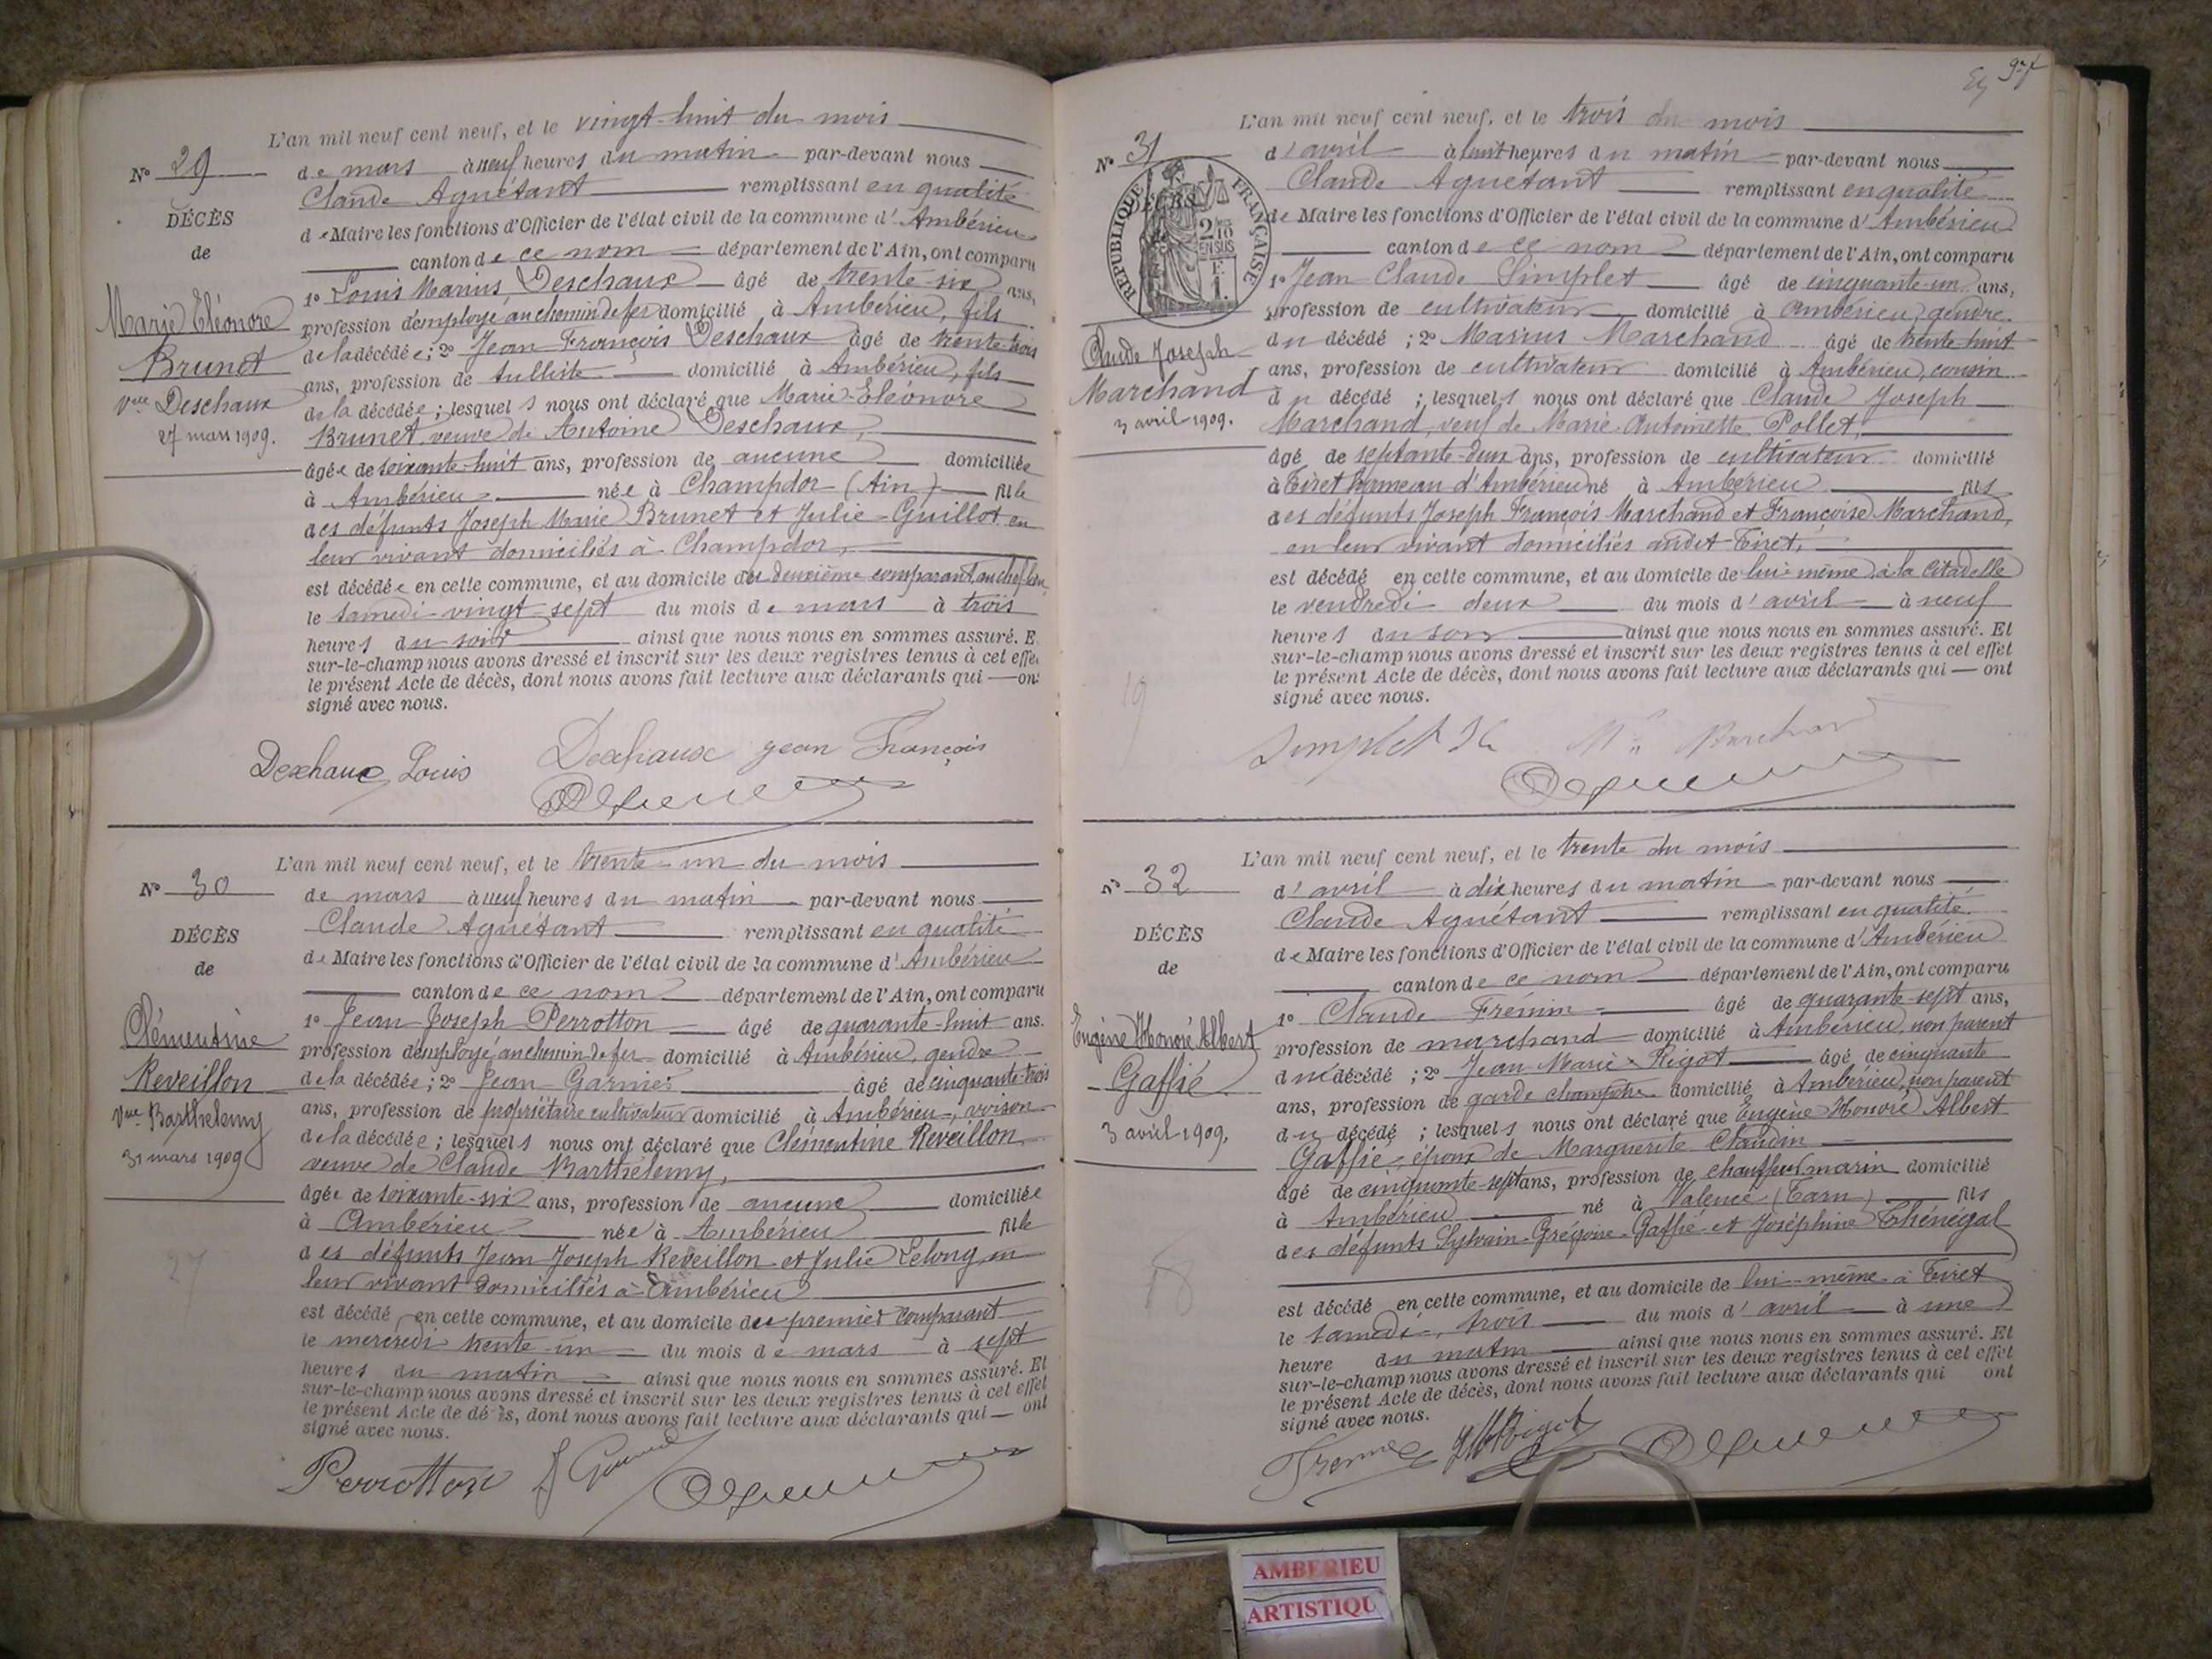 L'an mil neuf cent neuf, et le vingt-huit du mois
No 29
de mars à neuf heures du matin par-devant nous
Claude Aguétant remplissant en qualité
DÉCÈS
de Maire les fonctions d'Officier de l'état civil de la commune d'Ambérieu
de
canton de ce nom département de l'Ain, ont comparu
1o Louis Marius Deschaux âgé de trente-six ans,
Marie Eléonore
profession d'employé au chemin de fer domicilié à Ambérieu, fils
Brunet
de la décédée ; 2o Jean François Deschaux âgé de trente-trois
ans, profession de tulliste domicilié à Ambérieu, fils
Vve Deschaux
de la décédée ; lesquels nous ont déclaré que Marie-Eléonore
27 mars 1909.
Brunet, veuve de Antoine Deschaux,
âgée de soixante-huit ans, profession de aucune domiciliée
à Ambérieu née à Champdor (Ain) fille
des défunts Joseph Marie Brunet et Julie Guillot en
leur vivant domiciliés à Champdor,
est décédée en cette commune, et au domicile du deuxième comparant
le samedi vingt sept du mois de mars à trois
heures du soir ainsi que nous nous en sommes assuré. E
sur-le-champ nous avons dressé et inscrit sur les deux registres tenus à cet effe
le présent Acte de décès, dont nous avons fait lecture aux déclarants qui — on
signé avec nous.
Deschaux Louis Deschaux Jean François
L'an mil neuf cent neuf, et le trente-un du mois
No 30
de mars à neuf heures du matin par-devant nous
Claude Aguétant remplissant en qualité
DÉCÈS
de Maire les fonctions d'Officier de l'état civil de la commune d'Ambérieu
de
canton de ce nom département de l'Ain, ont comparu
Clémentine
1o Jean-Joseph Perrotton âgé de quarante-huit ans.
profession d'employé au chemin de fer domicilié à Ambérieu, gendre
Reveillon
de la décédée ; 2o Jean Garnier âgé de cinquante-trois
Vve Barthelemy
ans, profession de propriétaire cultivateur domicilié à Ambérieu, voison
31 mars 1909
de la décédée ; lesquels nous ont déclaré que Clémentine Reveillon
veuve de Claude Barthélemy,
âgée de soixante-six ans, profession de aucune domiciliée
à Ambérieu née à Ambérieu fille
des défunts Jean Joseph Reveillon et Julie Lelong en
leur vivant domiciliés à Ambérieu
27
est décédé en cette commune, et au domicile du premier comparant
le mercredi trente-un du mois de mars à sept
heures du matin ainsi que nous nous en sommes assuré. Et
sur-le-champ nous avons dressé et inscrit sur les deux registres tenus à cet effet
le présent Acte de dé ès, dont nous avons fait lecture aux déclarants qui — ont
signé avec nous.
Perrotton
L'an mil neuf cent neuf, et le trois du mois
No 31
d'avril à huit heures du matin par-devant nous
Claude Aguétant remplissant en qualité
RÉPUBLIQUE FRANÇAISE
de Maire les fonctions d'Officier de l'état civil de la commune d'Ambérieu
2/10 EN SUS
canton de ce nom département de l'Ain, ont comparu
1o Jean Claude Simplet âgé de cinquante-un ans,
profession de cultivateur domicilié à Ambérieu, gendre
Claude Joseph
du décédé ; 2o Marius Marchand âgé de trente-huit
Marchand
ans, profession de cultivateur domicilié à Ambérieu, cousin
3 avril 1909.
du décédé ; lesquels nous ont déclaré que Claude Joseph
Marchand, veuf de Marie-Antoinette Pollet,
âgé de septante-deux ans, profession de cultivateur domicilié
à Tiret hameau d'Ambérieu né à Ambérieu fils
des défunts Joseph François Marchand et Françoise Marchand,
en leur vivant domiciliés audit Tiret,
est décédé en cette commune, et au domicile de lui-même, à la Citadelle
le vendredi deux du mois d'avril à neuf
heures du soir ainsi que nous nous en sommes assuré. Et
sur-le-champ nous avons dressé et inscrit sur les deux registres tenus à cet effet
19
le présent Acte de décès, dont nous avons fait lecture aux déclarants qui — ont
signé avec nous.
Simplet JC Marchand
L'an mil neuf cent neuf, et le trente du mois
No 32
d'avril à dix heures du matin par-devant nous
Claude Aguétant remplissant en qualité
DÉCÈS
de Maire les fonctions d'Officier de l'état civil de la commune d'Ambérieu
de
canton de ce nom département de l'Ain, ont comparu
1o Claude Frémin âgé de quarante-sept ans,
Eugène Honoré Albert
profession de marchand domicilié à Ambérieu, non parent
Gaffié
du décédé ; 2o Jean Marie Rigot âgé de cinquante
ans, profession de garde champêtre domicilié à Ambérieu, non parent
3 avril 1909.
du décédé ; lesquels nous ont déclaré que Eugène Honoré Albert
Gaffié, époux de Marguerite Claudin
âgé de cinquante-sept ans, profession de chauffeur marin domicilié
à Ambérieu né à Valence (Tarn) fils
des défunts Sylvain-Grégoire Gaffié et Joséphine Thénégal
18
est décédé en cette commune, et au domicile de lui-même à Tiret
le samedi, trois du mois d'avril à une
heure du matin ainsi que nous nous en sommes assuré. Et
sur-le-champ nous avons dressé et inscrit sur les deux registres tenus à cet effet
le présent Acte de décès, dont nous avons fait lecture aux déclarants qui ont
signé avec nous.
AMBERIEU
ARTISTIQU